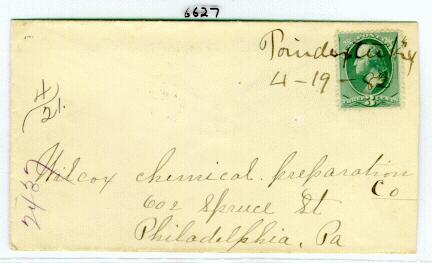 6627
4-19-82
4/21.
2437
Wilcox chemical preparation
Co
602 Spruce St
Philadelphia, Pa